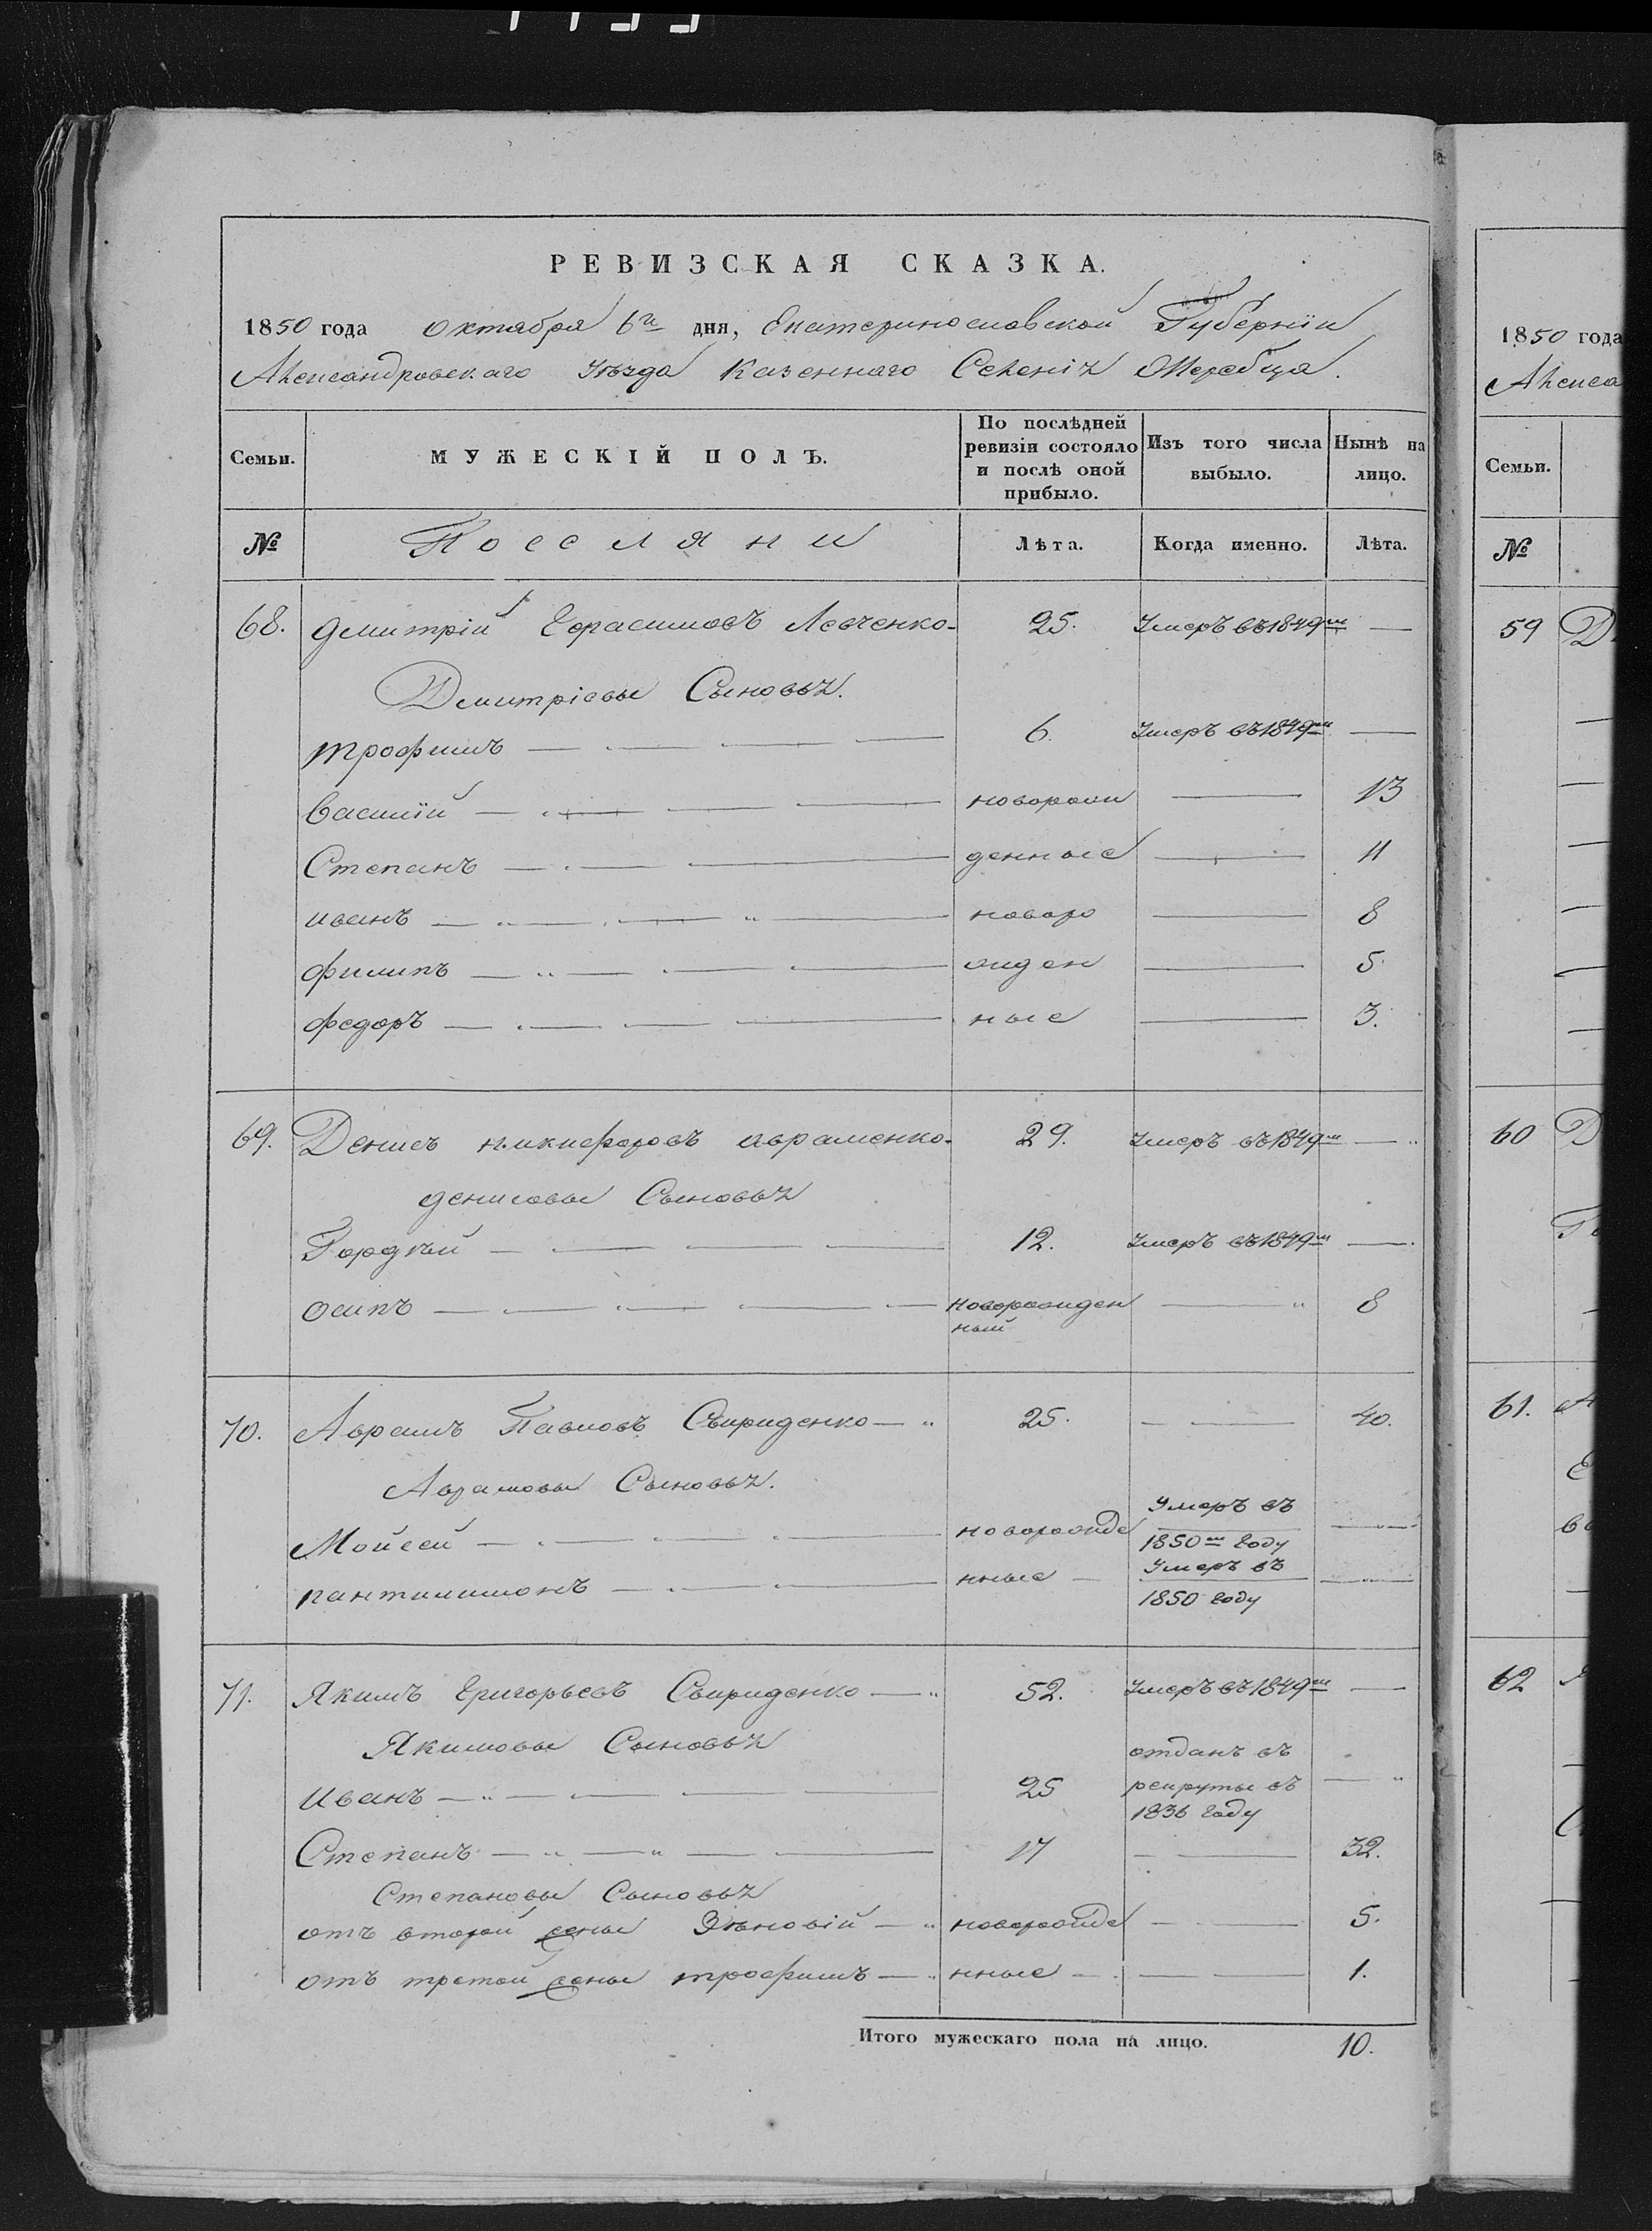 РЕВИЗСКАЯ СКАЗКА.
1850 года октября 6го дня, Екатеринославской Губерніи
Александровскаго Уѣзда Казеннаго Селенія Жеребца.
Семьи. МУЖЕСКІЙ ПОЛЪ. По послѣдней ревизіи состояло и послѣ оной прибыло. Изъ того числа выбыло. Нынѣ на лицо.
№ Поселяни Лѣта. Когда именно. Лѣта.
68. Дмитрій Герасимовъ Левченко 25. Умеръ въ 1849м —
Дмитріевы Сыновья.
трофимъ 6. Умеръ въ 1849м —
Василій новорож — 13
Степанъ денные — 11
иванъ новоро — 8
филипъ жден — 5.
федоръ ные — 3.
69. Денисъ никифоровъ авраменко 29. Умеръ въ 1849м —
денисовы Сыновья
Гордѣй 12. Умеръ въ 1849м —
осипъ новорожден — 8
ный
70. Аврамъ Павловъ Свириденко 25. — 40.
Аврамовы Сыновья.
Умеръ въ
Мойсей новорожде 1850м году —
Умеръ въ
пантилимонъ нные — 1850 году —
71. Якимъ Григорьевъ Свириденко 52. Умеръ въ 1849м —
Якимовы Сыновья отданъ въ
Иванъ 25 рекруты въ —
1836 году
Степанъ 17 — 32.
Степановы Сыновья
отъ второй жены Зѣновій новорожде — 5.
отъ третой жены трофимъ нные — 1.
Итого мужескаго пола на лицо. 10.
1850 года
Алекса
Семьи.
№
59 Д
60 Д
61. А
62